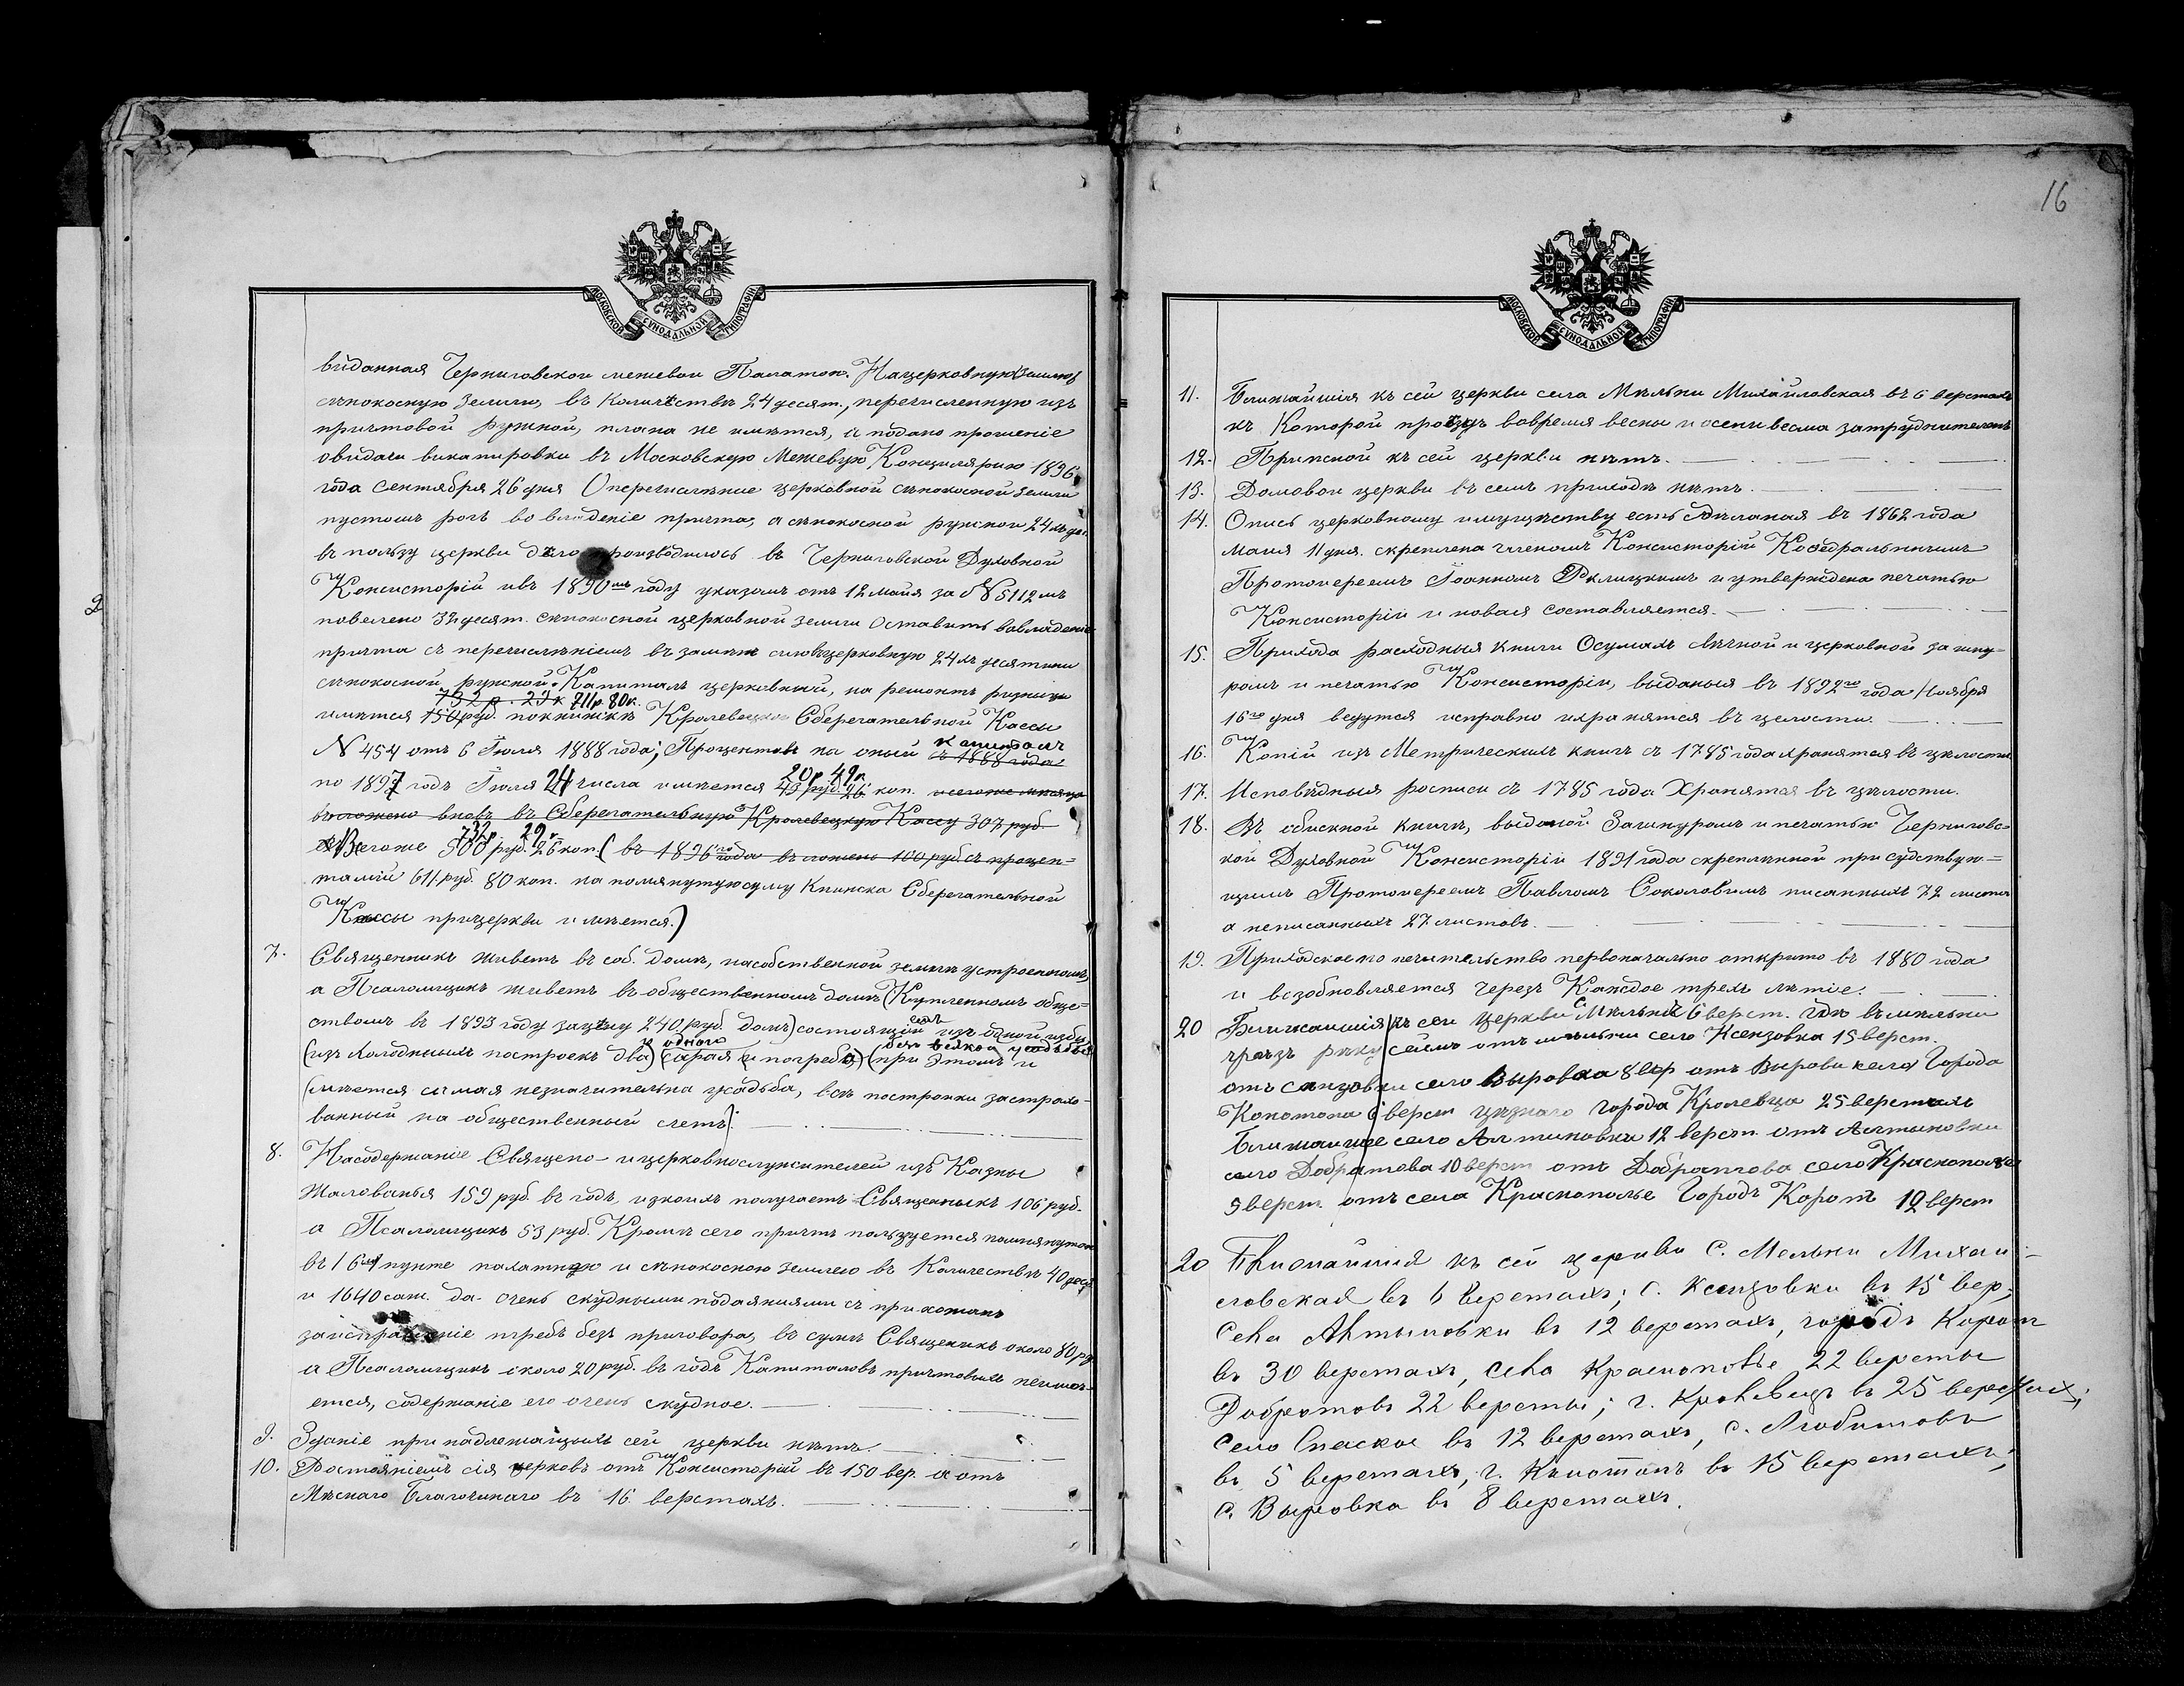 16
МОСКОВСКОЙ СѴНОДАЛЬНОЙ ТИПОГРАФІИ
выданная Черниговской межевой Палатой. На церковную землю,
сѣнокосную землю, въ количествѣ 24 десят., перечисленную изъ
причтовой ружной, плана не имѣтся, а подано прошеніе
овидачи викапировки въ Московскую Межевую Канцилярію 1896
года Сентября 26 дня О перечисленіе церковной сѣнокосной земли
пустошъ рогъ во владеніе причта, а сѣнокосной ружной 24хъ дес.
въ пользу церкви дѣло производилось въ Черниговской Духовной
Консисторіи ивъ 1890мъ году указомъ отъ 12 майя за №5112мъ
повелено 32 десят. сѣнокосной церковной земли Оставить вовладеніе
причта съ перечисленіемъ въ замѣнъ сило церковную 24хъ десятини
сѣнокосной ружной. Капиталъ церковный, на ремонтъ ризници
732 р. 29 к 711р. 80к.
имѣтся 150 руб. покнижкѣ Кролевецкой Сберегательной Кассы
№ 454 отъ 6 Іюля 1888 года; Процентовъ на оный капиталъ съ 1888 года
20р. 49к
по 1897 годъ Іюля 24 числа имѣется 43 руб 26 коп. исегоже мѣсяца
въложено вновъ въ Сберегательную Кролевецкую Кассу 307 руб.
732р. 29к
Всегоже 500 руб. 26 коп. (въ 1896го года въложено 100 руб съ процен=
тамій 611 руб. 80 коп. на помянутую суму Книжка Сберегательной
Кассы прицеркви имѣется.)
7. Священникъ живетъ въ соб. домѣ, насобственной землѣ устроенномъ,
а Псаломщикъ живетъ въ общественномъ домѣ (Купленномъ обще=
ствомъ въ 1893 году зацѣну 240 руб. домъ) состоящій изъ одной избы
и одного безъ всякой усадьбы
(изъ холодныхъ построекъ два) (сарая и погреба) (при Этомъ и
имѣется самая незначительна усадьба, всѣ постройки застрахо-
ванный на общественный счетъ).
8. Насодержаніе Священо- и церковнослужителей изъ Казны
Жалованья 159 руб. въ годъ, изкоихъ получаетъ Священныкъ 106 руб.
а Псаломщикъ 53 руб. Кромѣ сего причтъ пользуется помянутою
въ 16 пункте пахатною и сѣнокосною землею въ Количествѣ 40 десят
и 1640 саж. да очень скудными подаяниями съ прихожанъ
заисправленіе требъ безъ приговора, въ сумѣ Священикъ около 80 ру
а Псаломщикъ около 20 руб. въ годъ Капиталовъ причтовыхъ неимѣ-
ется, содержаніе его очень скудное.
9. Зданіе принадлежащыхъ сей церкви нѣтъ.
10. Разтояніемъ сія церковъ отъ Консисторіи въ 150 вер. а отъ
Мѣснаго Благочинаго въ 16 верстахъ.
МОСКОВСКОЙ СѴНОДАЛЬНОЙ ТИПОГРАФІИ
11. Ближайшія къ сей церкви села Мѣльни Михайловская въ 6 верстахъ
къ Которой проѣздъ вовремя весны и осени весма затруднителенъ
12. Приписной къ сей церкви нѣтъ.
13. Домовой церкви въ семъ приходѣ нѣтъ.
14. Опись церковному имуществу есть сдѣланая въ 1862 года
Маия 11 дня. скреплена членомъ Консисторій Кафедральнымъ
Протоиереемъ Іоанномъ Рклицкимъ и утверждена печатью
Консисторіи и новая составляется.
15. Прихода расходныя книги Осумахъ свѣчной и церковной за шну-
ромъ и печатью Консисторіи, выданыя въ 1892го года Ноября
16го дня ведутся исправно ихранятся въ целости.
16. Копій изъ Метрическихъ книгъ съ 1785 года хранятся въ цѣлости
17. Исповѣдныя росписи съ 1785 года Хранятся въ цѣлости.
18. Въ обискной книгѣ, выданой Зашнуромъ и печатью Черниговс=
кой Духовной Консисторій 1891 года скрепленной присудствую=
щимъ Протоиереемъ Павломъ Соколовимъ писанныхъ 72 листа
а неписанныхъ 27 листовъ.
19. Приходское попечительство первоначально открито въ 1880 года
и возобновляется черезъ Каждое трехъ лѣтіе.
20 Ближаишія къ сей церкви С. Мѣльня 6 верст.
чрезъ рѣку сеймъ отъ мѣльни село Ксензовка 15 верст.
отъ село Выровка 8 вер отъ Города
Конотопа верст Города Кролевца 25 верстахъ
Ближаишее село Алтиновки 12 верст. отъ Алтыновки
село Добратова 10 верст отъ Добратова село Краснополье
9 верст. отъ села Краснополье Городъ Коропъ 12 верст
20 Ближайшія къ сей церкви С. Мельни Михаи-
ловская въ 6 верстахъ; с. Ксензовки въ 15 вер.;
Села Алтыновки въ 12 верстахъ, городъ Коропъ
въ 30 верстахъ, села Краснополье 22 версты
Добротовъ 22 версты; г. Кролевецъ въ 25 верстах;
Село Спаское въ 12 верстахъ, с. Любитовъ
въ 5 верстахъ, г. Конотопъ въ 15 верстахъ;
С. Выровка въ 8 верстахъ.